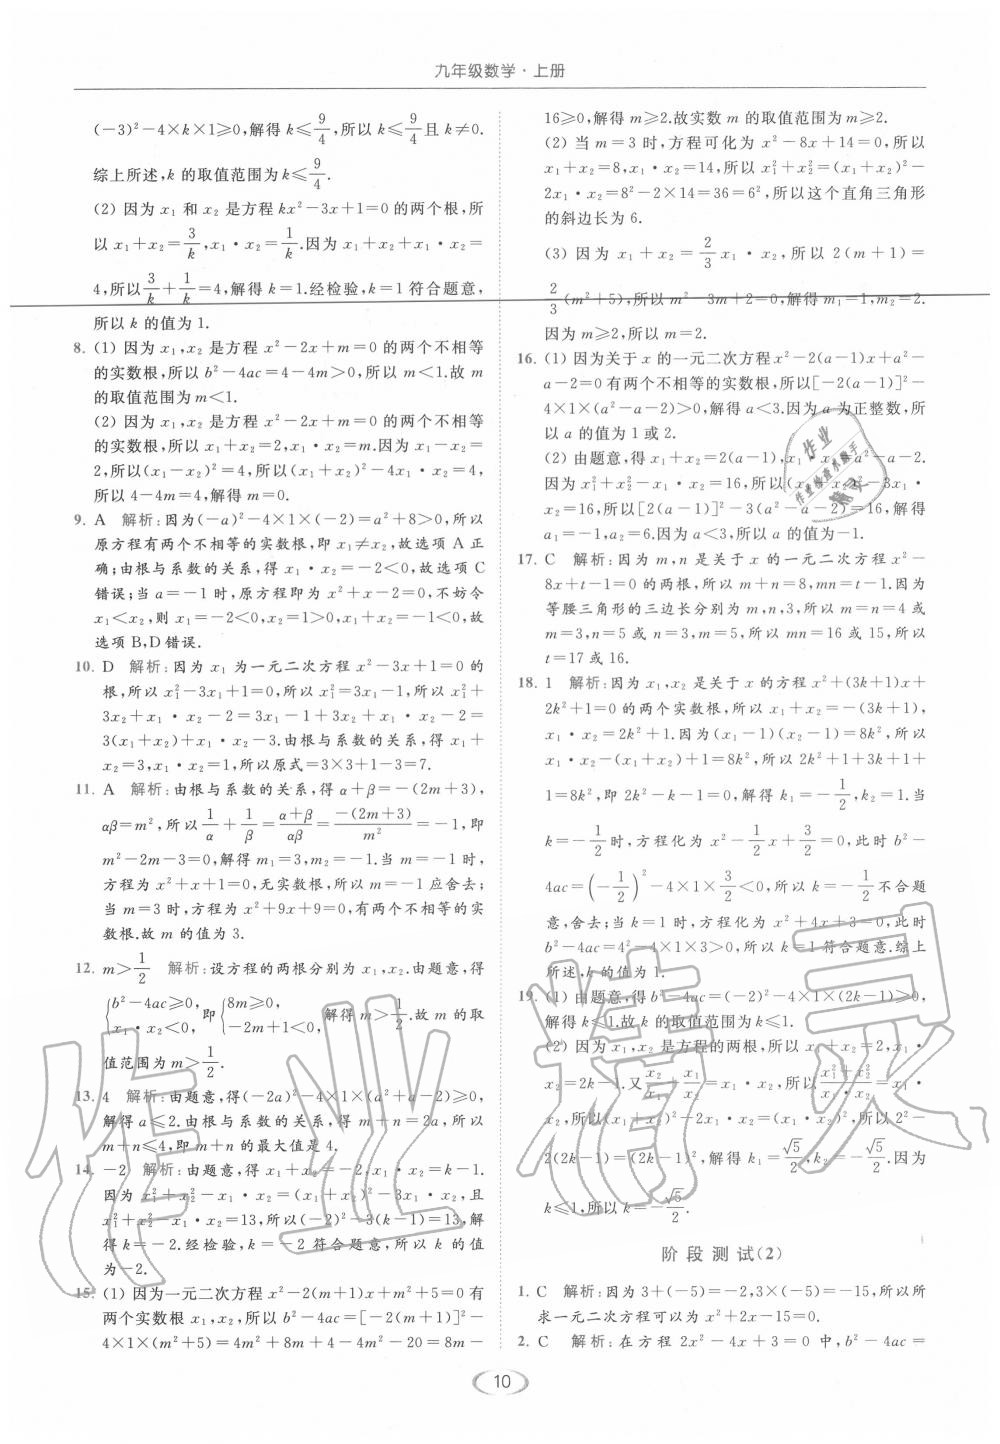 九年级数学·上册
(-3)²-4×k×1≥0,解得 k≤9/4,所以 k≤9/4且 k≠0.
综上所述,k 的取值范围为k≤9/4.
(2) 因为 x₁ 和 x₂ 是方程 kx²-3x+1=0 的两个根,所
以 x₁+x₂=3/k,x₁·x₂=1/k.因为 x₁+x₂+x₁·x₂=
4,所以3/k+1/k=4,解得 k=1.经检验,k=1 符合题意,
所以 k 的值为 1.
8. (1) 因为 x₁,x₂ 是方程 x²-2x+m=0 的两个不相等
的实数根,所以 b²-4ac=4-4m>0,所以 m<1.故 m
的取值范围为m<1.
(2) 因为 x₁,x₂ 是方程 x²-2x+m=0 的两个不相等
的实数根,所以 x₁+x₂=2,x₁·x₂=m.因为 x₁-x₂=
2,所以(x₁-x₂)²=4,所以(x₁+x₂)²-4x₁·x₂=4,
所以 4-4m=4,解得 m=0.
9. A 解析:因为(-a)²-4×1×(-2)=a²+8>0,所以
原方程有两个不相等的实数根,即 x₁≠x₂,故选项 A 正
确;由根与系数的关系,得 x₁·x₂=-2<0,故选项 C
错误;当 a=-1 时,原方程即为 x²+x-2=0,不妨令
x₁<x₂,则 x₁=-2<0,x₂=1>0,x₁+x₂=-1<0,故
选项 B,D 错误.
10. D 解析:因为 x₁ 为一元二次方程 x²-3x+1=0 的
根,所以 x₁²-3x₁+1=0,所以 x₁²=3x₁-1,所以 x₁²+
3x₂+x₁·x₂-2=3x₁-1+3x₂+x₁·x₂-2=
3(x₁+x₂)+x₁·x₂-3.由根与系数的关系,得 x₁+
x₂=3,x₁·x₂=1,所以原式=3×3+1-3=7.
11. A 解析:由根与系数的关系,得 α+β=-(2m+3),
αβ=m²,所以 1/α+1/β=(α+β)/αβ=-(2m+3)/m²=-1,即
m²-2m-3=0,解得 m₁=3,m₂=-1.当 m=-1 时,
方程为 x²+x+1=0,无实数根,所以 m=-1 应舍去;
当 m=3 时,方程为 x²+9x+9=0,有两个不相等的实
数根.故 m 的值为 3.
12. m>1/2 解析:设方程的两根分别为 x₁,x₂.由题意,得
{b²-4ac≥0, x₁·x₂<0, 即{8m≥0, -2m+1<0, 解得 m>1/2.故 m 的取
值范围为 m>1/2.
13. 4 解析:由题意,得(-2a)²-4×1×(a²+a-2)≥0,
解得 a≤2.由根与系数的关系,得 m+n=2a,所以
m+n≤4,即 m+n 的最大值是 4.
14. -2 解析:由题意,得 x₁+x₂=-2,x₁·x₂=k-1.
因为 x₁²+x₂²-x₁·x₂=(x₁+x₂)²-3x₁·x₂,且
x₁²+x₂²-x₁·x₂=13,所以(-2)²-3(k-1)=13,解
得 k=-2.经检验,k=-2 符合题意,所以 k 的值
为-2.
15. (1) 因为一元二次方程 x²-2(m+1)x+m²+5=0 有
两个实数根 x₁,x₂,所以 b²-4ac=[-2(m+1)]²-
4×1×(m²+5)=4m²+8m+4-4m²-20=8m-
16≥0,解得 m≥2.故实数 m 的取值范围为 m≥2.
(2) 当 m=3 时,方程可化为 x²-8x+14=0,所以
x₁+x₂=8,x₁·x₂=14,所以 x₁²+x₂²=(x₁+x₂)²-
2x₁·x₂=8²-2×14=36=6²,所以这个直角三角形
的斜边长为 6.
(3) 因为 x₁+x₂=2/3x₁·x₂,所以 2(m+1)=
2/3(m²+5),所以 m²-3m+2=0,解得 m₁=1,m₂=2.
因为 m≥2,所以 m=2.
16. (1) 因为关于 x 的一元二次方程x²-2(a-1)x+a²-
a-2=0 有两个不相等的实数根,所以[-2(a-1)]²-
4×1×(a²-a-2)>0,解得 a<3.因为 a 为正整数,所
以 a 的值为 1 或 2.
(2) 由题意,得 x₁+x₂=2(a-1),x₁·x₂=a²-a-2.
因为 x₁²+x₂²-x₁·x₂=16,所以(x₁+x₂)²-3x₁·
x₂=16,所以[2(a-1)]²-3(a²-a-2)=16,解得
a₁=-1,a₂=6.因为 a<3,所以 a 的值为-1.
17. C 解析:因为 m,n 是关于 x 的一元二次方程 x²-
8x+t-1=0 的两根,所以 m+n=8,mn=t-1.因为
等腰三角形的三边长分别为 m,n,3,所以 m=n=4 或
m=3,n=5 或 n=3,m=5,所以 mn=16 或 15,所以
t=17 或 16.
18. 1 解析:因为 x₁,x₂ 是关于 x 的方程 x²+(3k+1)x+
2k²+1=0 的两个实数根,所以 x₁+x₂=-(3k+1),
x₁·x₂=2k²+1.因为(x₁-1)(x₂-1)=8k²,所以
x₁·x₂-(x₁+x₂)+1=8k²,所以 2k²+1+3k+1+
1=8k²,即 2k²-k-1=0,解得 k₁=-1/2,k₂=1.当
k=-1/2时,方程化为 x²-1/2x+3/2=0,此时 b²-
4ac=(-1/2)²-4×1×3/2<0,所以 k=-1/2不合题
意,舍去;当 k=1 时,方程化为 x²+4x+3=0,此时
b²-4ac=4²-4×1×3>0,所以 k=1 符合题意.综上
所述,k 的值为 1.
19. (1) 由题意,得 b²-4ac=(-2)²-4×1×(2k-1)≥0,
解得 k≤1.故 k 的取值范围为 k≤1.
(2) 因为 x₁,x₂ 是方程的两根,所以 x₁+x₂=2,x₁·
x₂=2k-1.又x₂/x₁+x₁/x₂=x₁·x₂,所以(x₁²+x₂²)/(x₁·x₂)=x₁·
x₂,所以(x₁+x₂)²-2x₁·x₂=(x₁·x₂)²,所以 2²-
2(2k-1)=(2k-1)²,解得 k₁=√5/2,k₂=-√5/2.因为
k≤1,所以 k=-√5/2.
阶段测试(2)
1. C 解析:因为 3+(-5)=-2,3×(-5)=-15,所以所
求一元二次方程可以为 x²+2x-15=0.
2. C 解析:在方程 2x²-4x+3=0 中,b²-4ac=
10
作业精灵